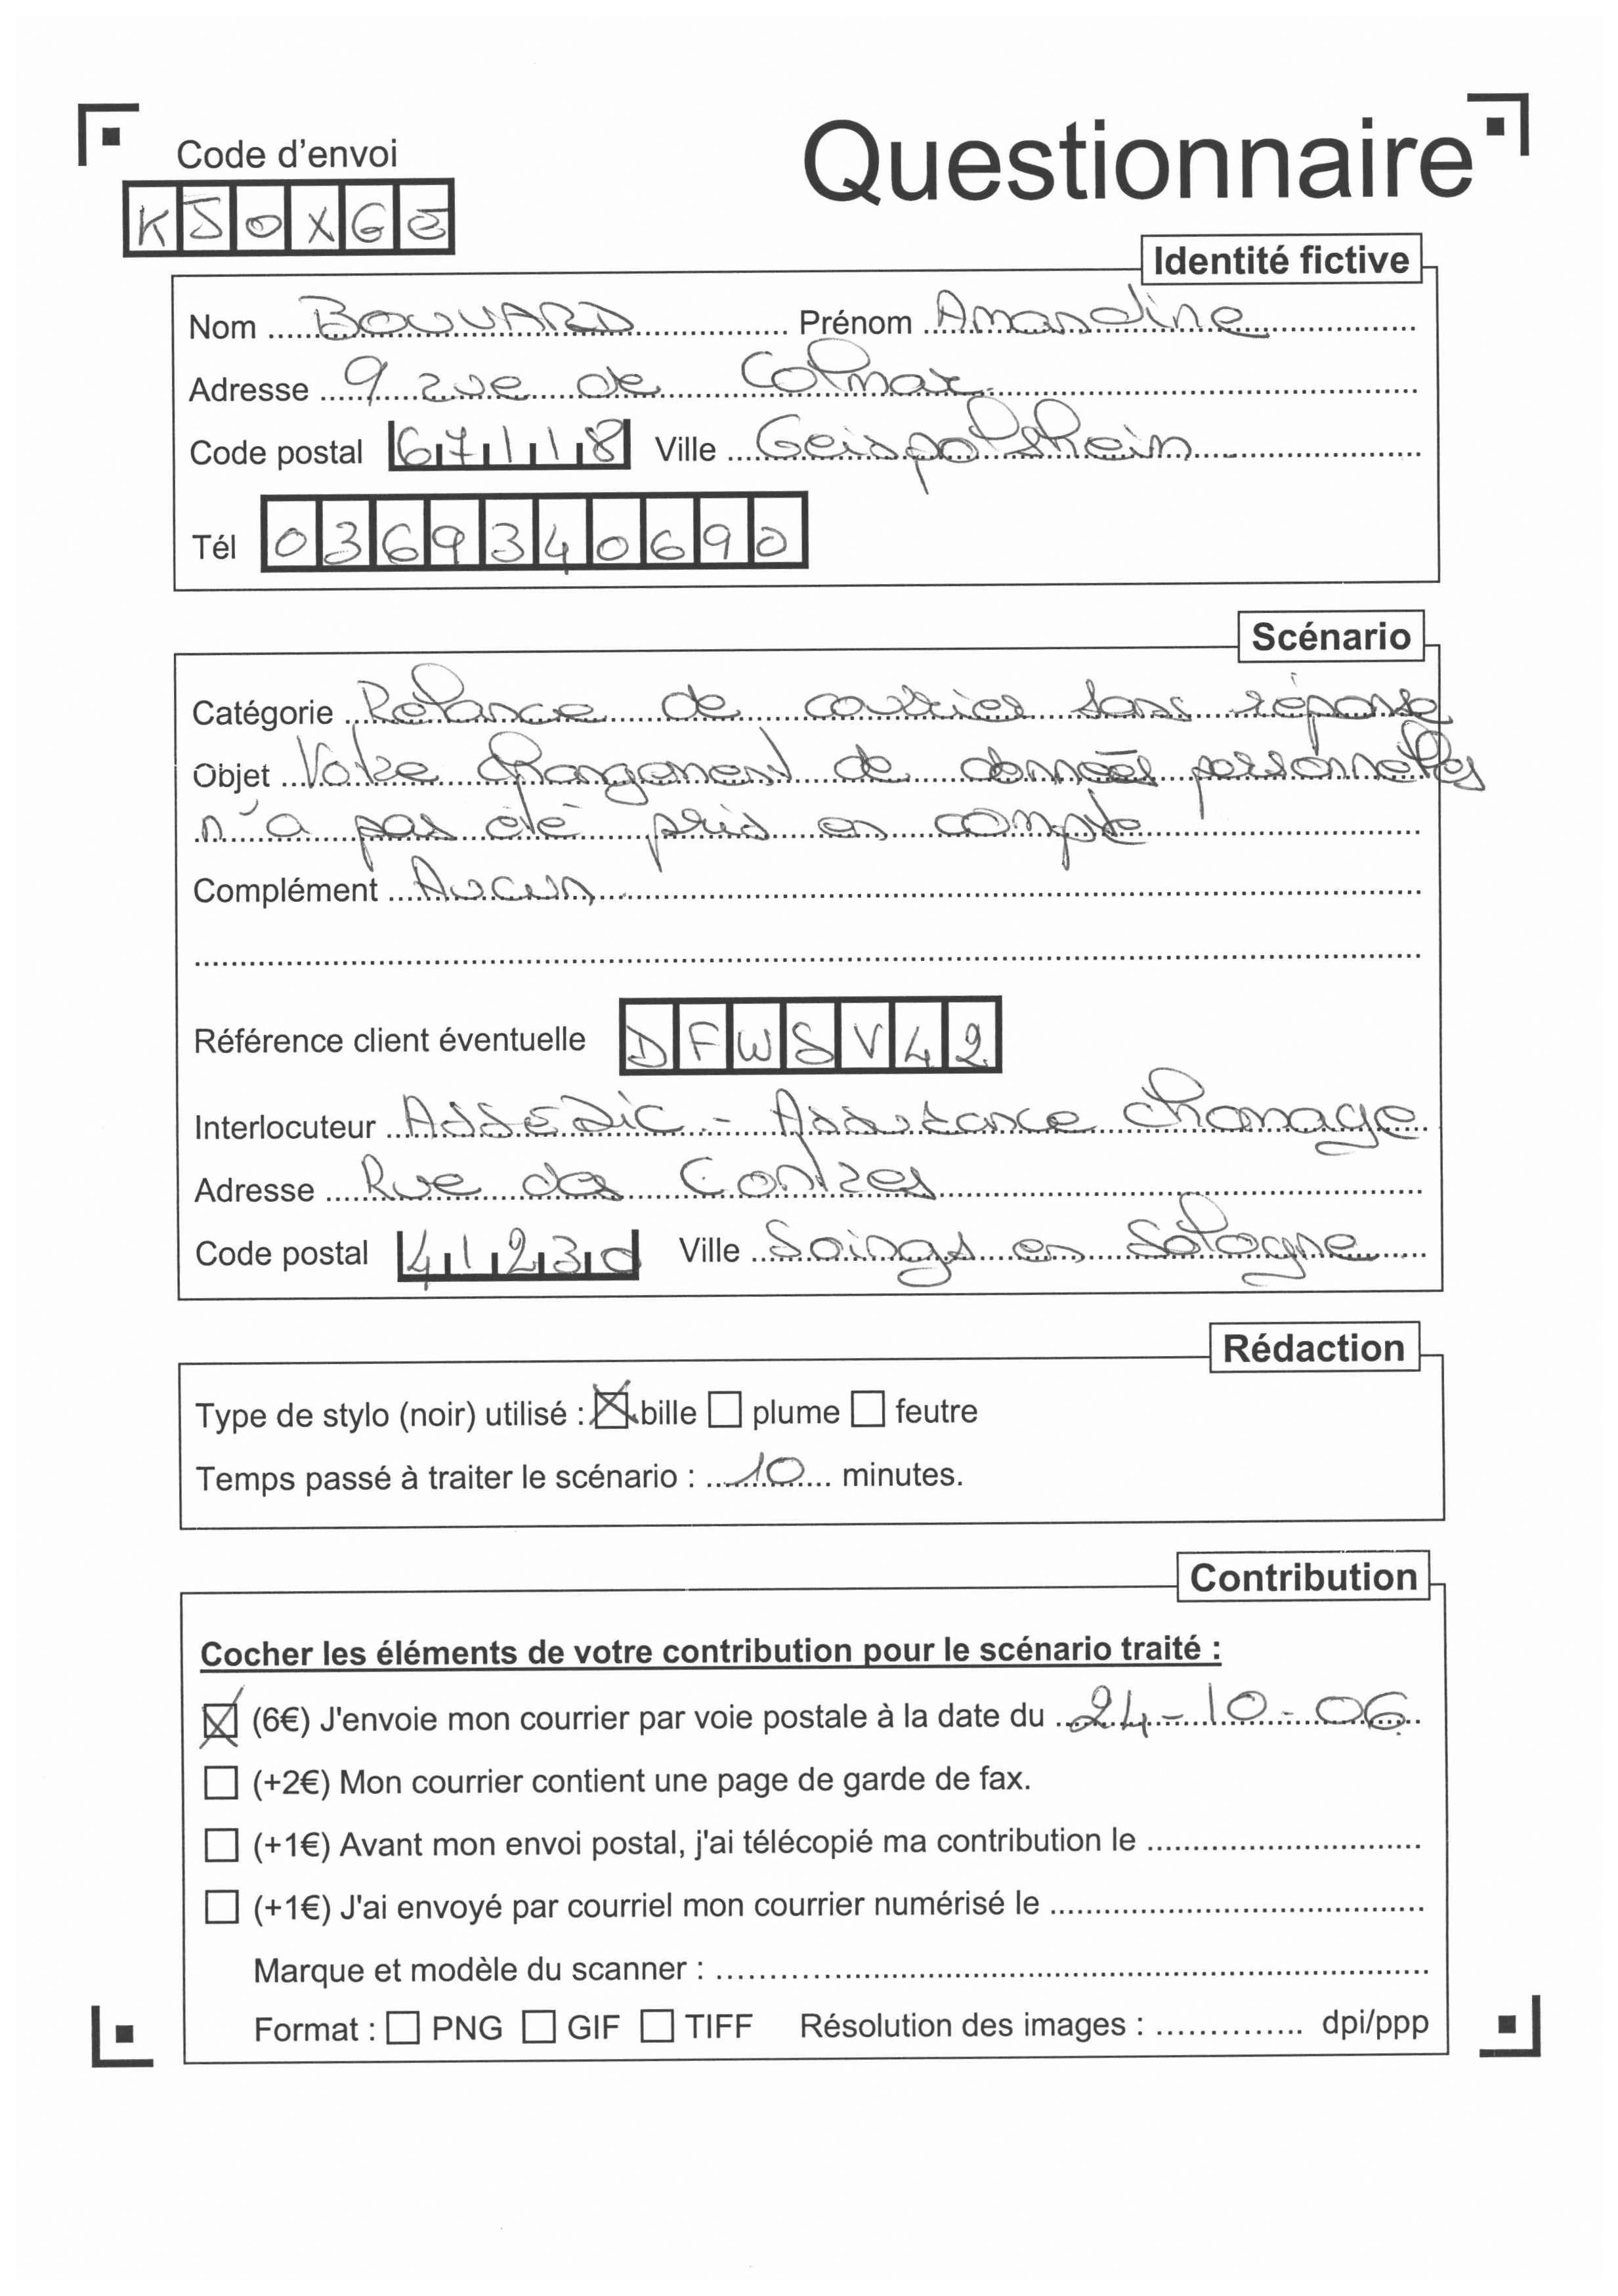 Code d'envoi
Questionnaire
KJOXGE
Identité fictive
Nom BOUVARD Prénom Amandine
Adresse 9 rue de Colmar
Code postal 67118 Ville Geispolsheim
Tél 0369340690
Scénario
Catégorie Relance de courrier sans réponse
Objet Votre changement de données personnelles
n'a pas été pris en compte
Complément Aucun
Référence client éventuelle DFWSV42
Interlocuteur ASSEDIC - Assistance chomage
Adresse Rue des Contres
Code postal 41230 Ville Soings en Sologne
Rédaction
Type de stylo (noir) utilisé : bille plume feutre
Temps passé à traiter le scénario : 10 minutes.
Contribution
Cocher les éléments de votre contribution pour le scénario traité :
(6€) J'envoie mon courrier par voie postale à la date du 24-10-06
(+2€) Mon courrier contient une page de garde de fax.
(+1€) Avant mon envoi postal, j'ai télécopié ma contribution le
(+1€) J'ai envoyé par courriel mon courrier numérisé le
Marque et modèle du scanner :
Format : PNG GIF TIFF Résolution des images : dpi/ppp